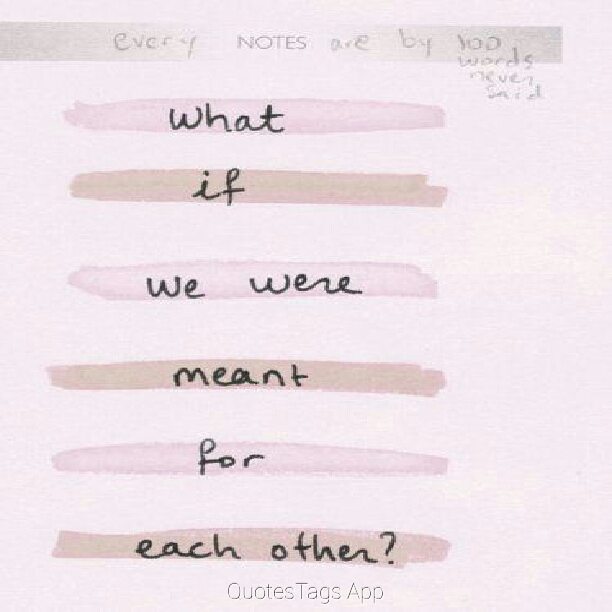 every NOTES are by 100
words
never
said
what
if
we were
meant
for
each other?
QuotesTags App